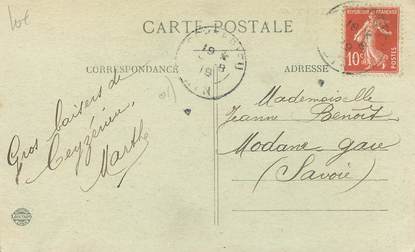 10€
CARTE POSTALE
CORRESPONDANCE
ADRESSE
10c
POSTES
Gros baisers de
Ceyzérieu,
Marthe
Mademoiselle
Jeanne Benoit
Modane gare
(Savoie)